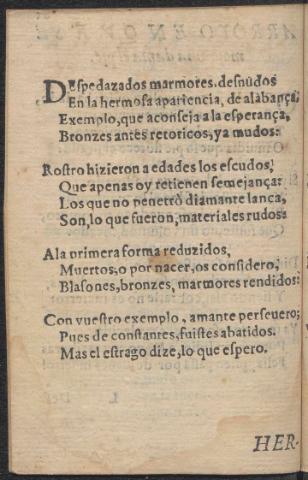 DEspedazados marmores, desnudos
En la hermosa apariencia, de alabança,
Exemplo, que aconseja a la esperança,
Bronzes antes retoricos, ya mudos:
Rostro hizieron a edades los escudos,
Que apenas oy retienen semejança:
Los que no penetrò diamante lança,
Son, lo que fueron, materiales rudos:
A la primera forma reduzidos,
Muertos, o por nacer, os considero,
Blasones, bronzes, marmores rendidos:
Con vuestro exemplo, amante perseuero;
Pues de constantes, fuistes abatidos.
Mas el estrago dize, lo que espero.
HER-